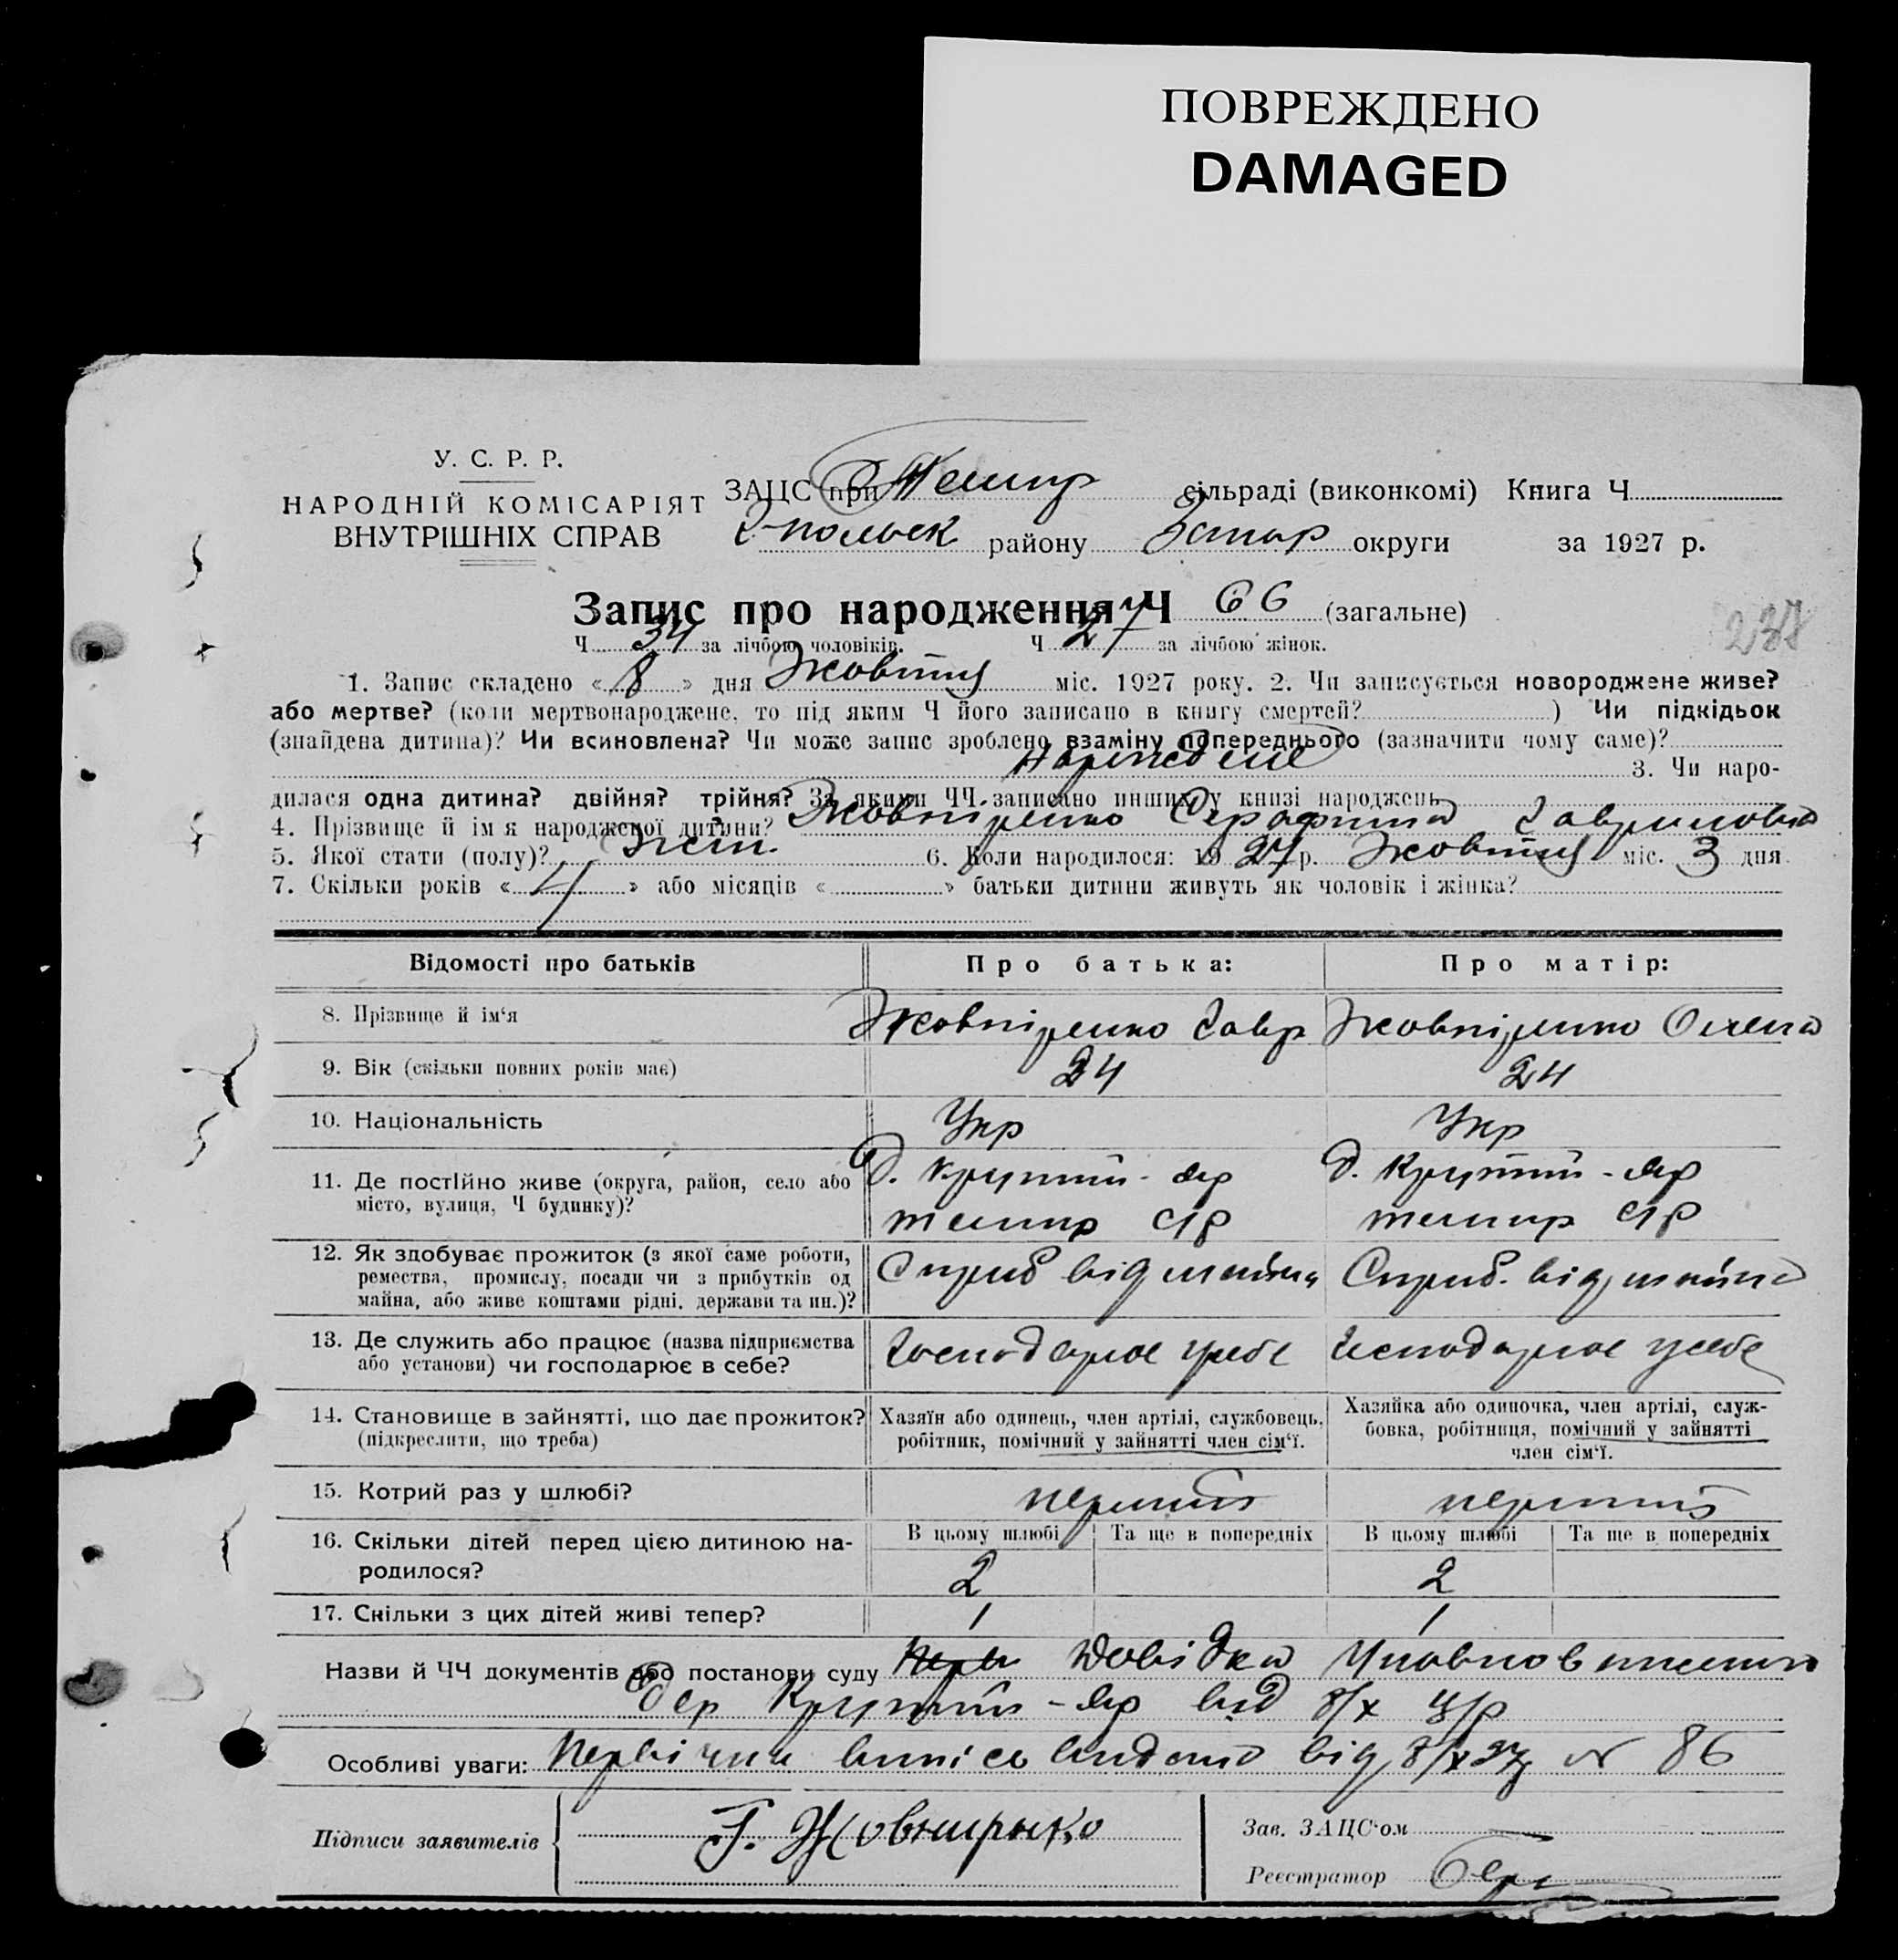 ПОВРЕЖДЕНО
DAMAGED
У. С. Р. Р.
НАРОДНІЙ КОМІСАРІЯТ
ВНУТРІШНІХ СПРАВ
ЗАЦС при Темир сільраді (виконкомі) Книга Ч
Г-польск району Запор округи за 1927 р.
Запис про народження Ч 66 (загальне)
237
Ч 34 за лічбою чоловіків. Ч 27 за лічбою жінок.
1. Запис складено « 8 » дня Жовтня міс. 1927 року. 2. Чи записується новороджене живе?
або мертве? (коли мертвонароджене, то під яким Ч його записано в книгу смертей? ) Чи підкідьок
(знайдена дитина)? Чи всиновлена? Чи може запис зроблено взаміну попереднього (зазначити чому саме)?
3. Чи наро-
дилася одна дитина? двійня? трійня? За якими ЧЧ записано инших у книзі народжень
4. Прізвище й ім я народженої дитини? Жовніренко Серафима Гавриловна
5. Якої стати (полу)? Жін. 6. Коли народилося: 19 27 р. Жовтня міс. 3 дня
7. Скільки років « 4 » або місяців « » батьки дитини живуть як чоловік і жінка?
Відомості про батьків Про батька: Про матір:
8. Прізвище й ім‘я Жовніренко Гавр Жовніренко Олена
9. Вік (скільки повних років має) 24 24
10. Національність Укр Укр
11. Де постійно живе (округа, район, село або місто, вулиця, Ч будинку)?
д. Крутий-Яр
темир с/р
д. Крутий-Яр
темир с/р
12. Як здобуває прожиток (з якої саме роботи,
ремества, промислу, посади чи з прибутків од
майна, або живе коштами рідні, держави та ин.)?
від майна від майна
13. Де служить або працює (назва підприємства
або установи) чи господарює в себе?
Господарює у себе Господарює у себе
14. Становище в зайнятті, що дає прожиток?
(підкреслити, що треба)
Хазяїн або одинець, член артілі, службовець,
робітник, помічний у зайнятті член сім‘ї.
Хазяйка або одиночка, член артілі, служ-
бовка, робітниця, помічний у зайнятті
член сім‘ї.
15. Котрий раз у шлюбі? перший перший
16. Скільки дітей перед цією дитиною на-
родилося?
В цьому шлюбі Та ще в попередніх В цьому шлюбі Та ще в попередніх
2 2
17. Скільки з цих дітей живі тепер? 1 1
Назви й ЧЧ документів або постанови суду Довідка Уповновашено
дер Крутий-Яр від 8/х ц/р
Особливі уваги: Первічни випісь видано від 8/х 27 № 86
Підписи заявителів Г. Жовниренко
Зав. ЗАЦС‘ом
Реєстратор